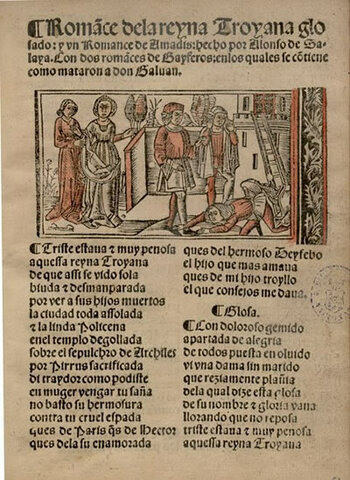 Romāce dela reyna Troyana glo
sado: y vn Romance de Amadis: hecho por Alonso de Sa-
laya. Con dos romāces de Gayferos: enlos quales se cōtiene
como mataron a don Galuan.
Triste estaua & muy penosa
aquessa reyna Troyana
de que assi se vido sola
biuda & desmanparada
por ver a sus hijos muertos
la ciudad toda assolada
& la linda Policena
enel templo degollada
sobre el sepulchro de Archiles
por Pirrus sacrificada
di traydor como podiste
en muger vengar tu saña
no basto su hermosura
contra tu cruel espada
ques de Paris q̄s de Hector
ques dela su enamorada
ques del hermoso Deyfebo
el hijo que mas amaua
ques de mi hijo troyllo
el que consejos me daua.
Glosa.
Con doloroso gemido
apartada de alegria
de todos puesta en oluido
vi vna dama sin marido
que reziamente plañia
dela qual dize esta glosa
de su nombre & gloria vana
llorando que no reposa
triste estaua & muy penosa
aquessa reyna Troyana